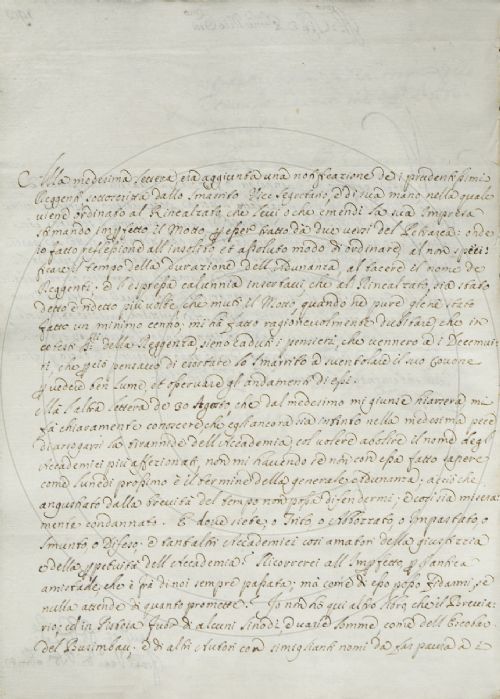 Alla medesima lettera era aggiunta una notificazione de i prudentissimi
Reggenti sottoscritta dallo Smarrito Vice Segretario, e di sua mano nella quale
viene ordinato al Rinealzato, che levi o che emendi la sua Impresa
stimando imperfetto il Motto, per esser tratto da due versi del Petrarca: onde
io fatto reflessione all'insolito, et assoluto modo di ordinare, al non speci-
ficare il tempo della durazione dell'Adunanza, al tacere il nome de
Reggenti, e l'espressa calunnia inseritavi, che al Rinealzato, sia stato
detto e ridetto più volte, che muti il Motto, quando nè pure gliene è stato
fatto un minimo cenno, mi ha fatto ragionevolmente dubitare, che in
cotesti della Reggenza sieno caduti i pensieri, che vennero a i Decemvi-
ri, che però pensavo di esortare lo Smarrito a sventolare il suo
ben lume, et osservare gl'andamenti di essi
Ma l'altra lettera de 30 Agosto, che dal medesimo mi giunse hiersera mi
fà chiaramente conoscere che egli ancora sia infinto nella medesima pece
di arrogarsi la tirannide dell'Accademia, col volere abolire il nome degl'
Accademici più affezionati, non mi havendo se non con essa fatto sapere
come lunedi prossimo è il termine della generale adunanza, acciò che
angustiato dalla brevità del tempo non possa difendermi, e così sia misera-
mente condannato. E dove siete, o Trito, o Abbozzato, o Impastato, o
Smunto, o Difeso, e tant'altri Accademici così amatori della giustizia
e della perpetuità dell'Accademia? Ricorrerei all'Imperfetto, per l'antica
amistade, che è frà di noi sempre passata; mà come di esso posso fidarmi, se
nulla attende di quanto promette? Io non ho qui altro libro, che il Brevia-
rio, ed in Pistoia fuor di alcuni Sinodi, e varie Somme come dell'Escobar,
del Busimbau, e di altri Autori con simiglianti nomi da far paura a i